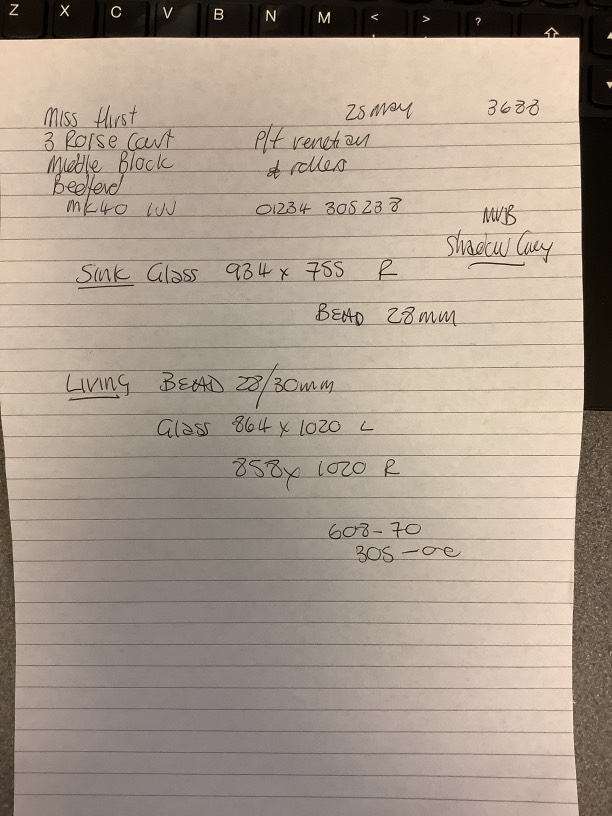 Z X C V B N M < > ?
Miss Hirst 25 May 3688
3 Rorse Court P/f venetian
Middle Block & rollers
Bedford
MK40 01234 305238
MVB
Shadow Grey
Sink Glass 934 x 755 R
BEAD 28mm
Living BEAD 28/30mm
Glass 864 x 1020 L
858 x 1020 R
608-70
305-00